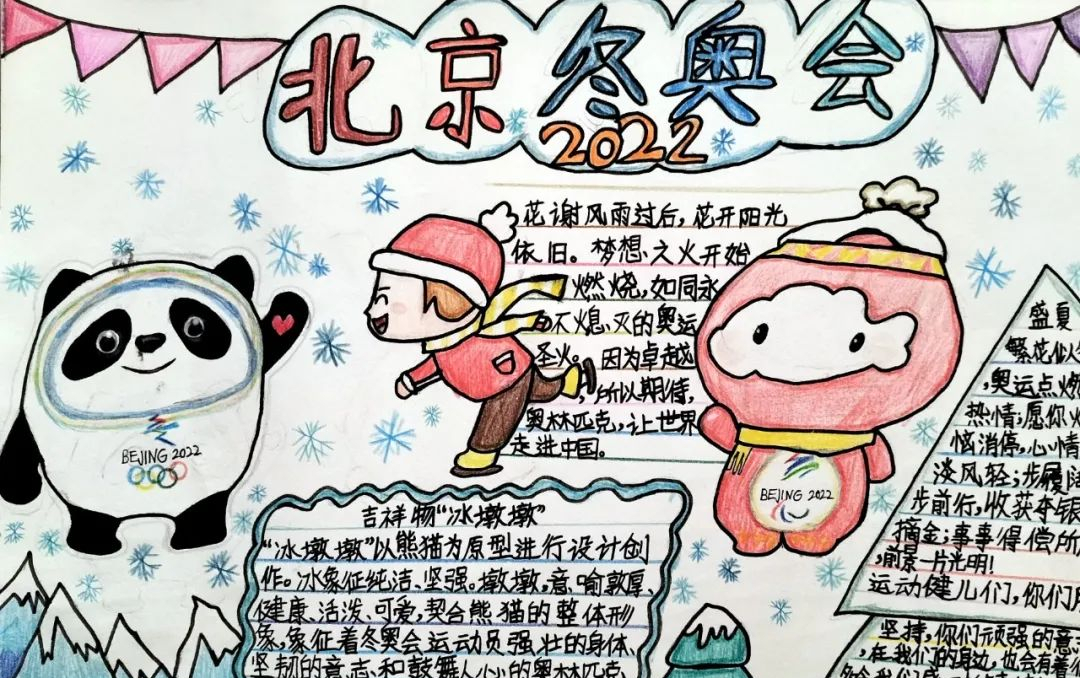 北京冬奥会
2022
花谢风雨过后，花开阳光
依旧。梦想之火开始
燃烧，如同永
不熄灭的奥运
圣火。因为卓越
，所以期待，
奥林匹克，让世界
走进中国。
BEIJING 2022
BEIJING 2022
吉祥物“冰墩墩”
“冰墩墩”以熊猫为原型进行设计创
作。冰象征纯洁、坚强。墩墩，意喻敦厚、
健康、活泼、可爱，契合熊猫的整体形
象，象征着冬奥会运动员强壮的身体、
坚韧的意志、和鼓舞人心的奥林匹克
盛夏
繁花似
，奥运点燃
热情；愿你
恼消停，心情
淡风轻；步履
步前行，收获夺银
摘金；事事得偿所
，前景一片光明！
运动健儿们，你们
坚持，你们顽强的意
，在我们的身边，也会有着